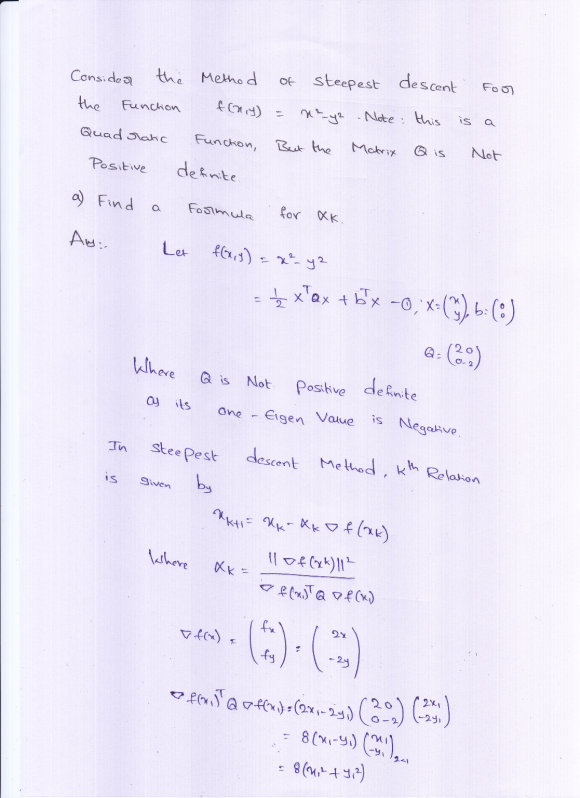 Consider the Method of steepest descent For
the Function f(x,y) = x²-y². Note: this is a
Quadratic Function, But the Matrix Q is Not
Positive definite.
a) Find a Formula for αk.
Ans:- Let f(x,y) = x²-y²
= 1/2 xᵀQx + bᵀx -①, X=(x y), b:(0 0)
Q=(2 0 0 -2)
Where Q is Not positive definite
as its one-Eigen Value is Negative.
In steepest descent Method, kth Relation
is given by
xk+1 = xk - αk ∇f(xk)
Where αk = ||∇f(xk)||² / ∇f(x₁)ᵀQ∇f(x₁)
∇f(x) = (fx fy) = (2x -2y)
∇f(x₁)ᵀQ∇f(x₁) = (2x₁-2y₁) (2 0 0 -2) (2x₁ -2y₁)
= 8(x₁-y₁) (x₁ -y₁)2×1
= 8(x₁²+y₁²)